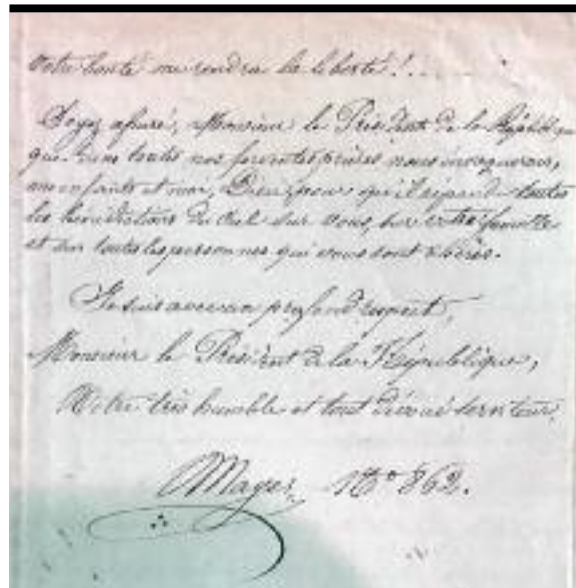 Votre bonté me rendra la liberté !....
Soyez assuré, Monsieur le Président de la République
que dans toutes nos ferventes prières nous invoquerons,
mes enfants et moi, Dieu, pour qu'il répande toutes
les bénédictions du Ciel sur vous, sur votre famille
et sur toutes les personnes qui vous sont chères.
Je suis avec un profond respect,
Monsieur le Président de la République,
Votre très humble et tout dévoué serviteur,
Mayer, No 862.